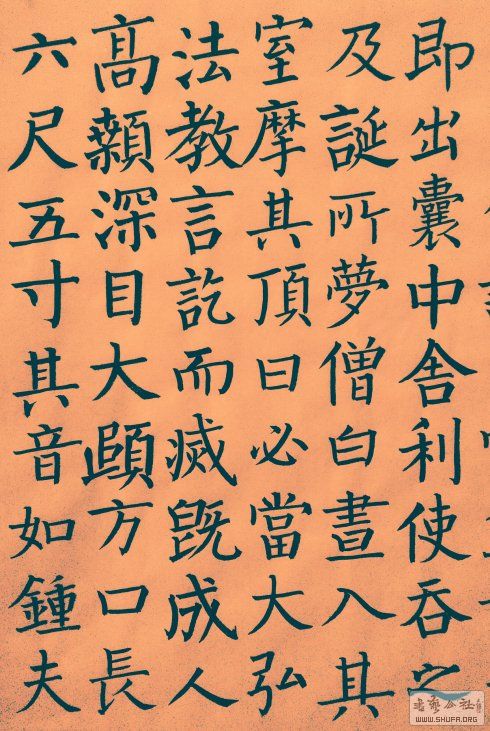 即出囊中舍利使吞之
及誕所夢僧白晝入其
室摩其頂曰必當大弘
法教言訖而滅旣成人
髙顙深目大頤方口長
六尺五寸其音如鍾夫
WWW.SHUFA.ORG